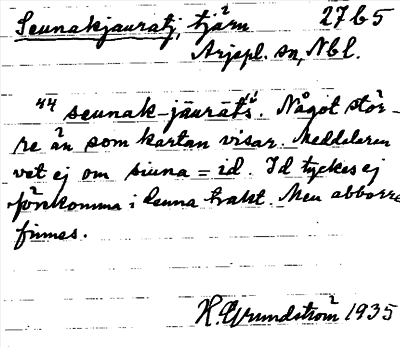 Seunakjauratj, tjärn 27 b 5
Arjepl. sn, Nbl.
"seunak-jäuràtś". Något stör-
re än som kartan visar. Meddelaren
vet ej om siuna = id. Id tyckes ej
förekomma i denna trakt. Men abborre
finnes.
H. Grundström 1935